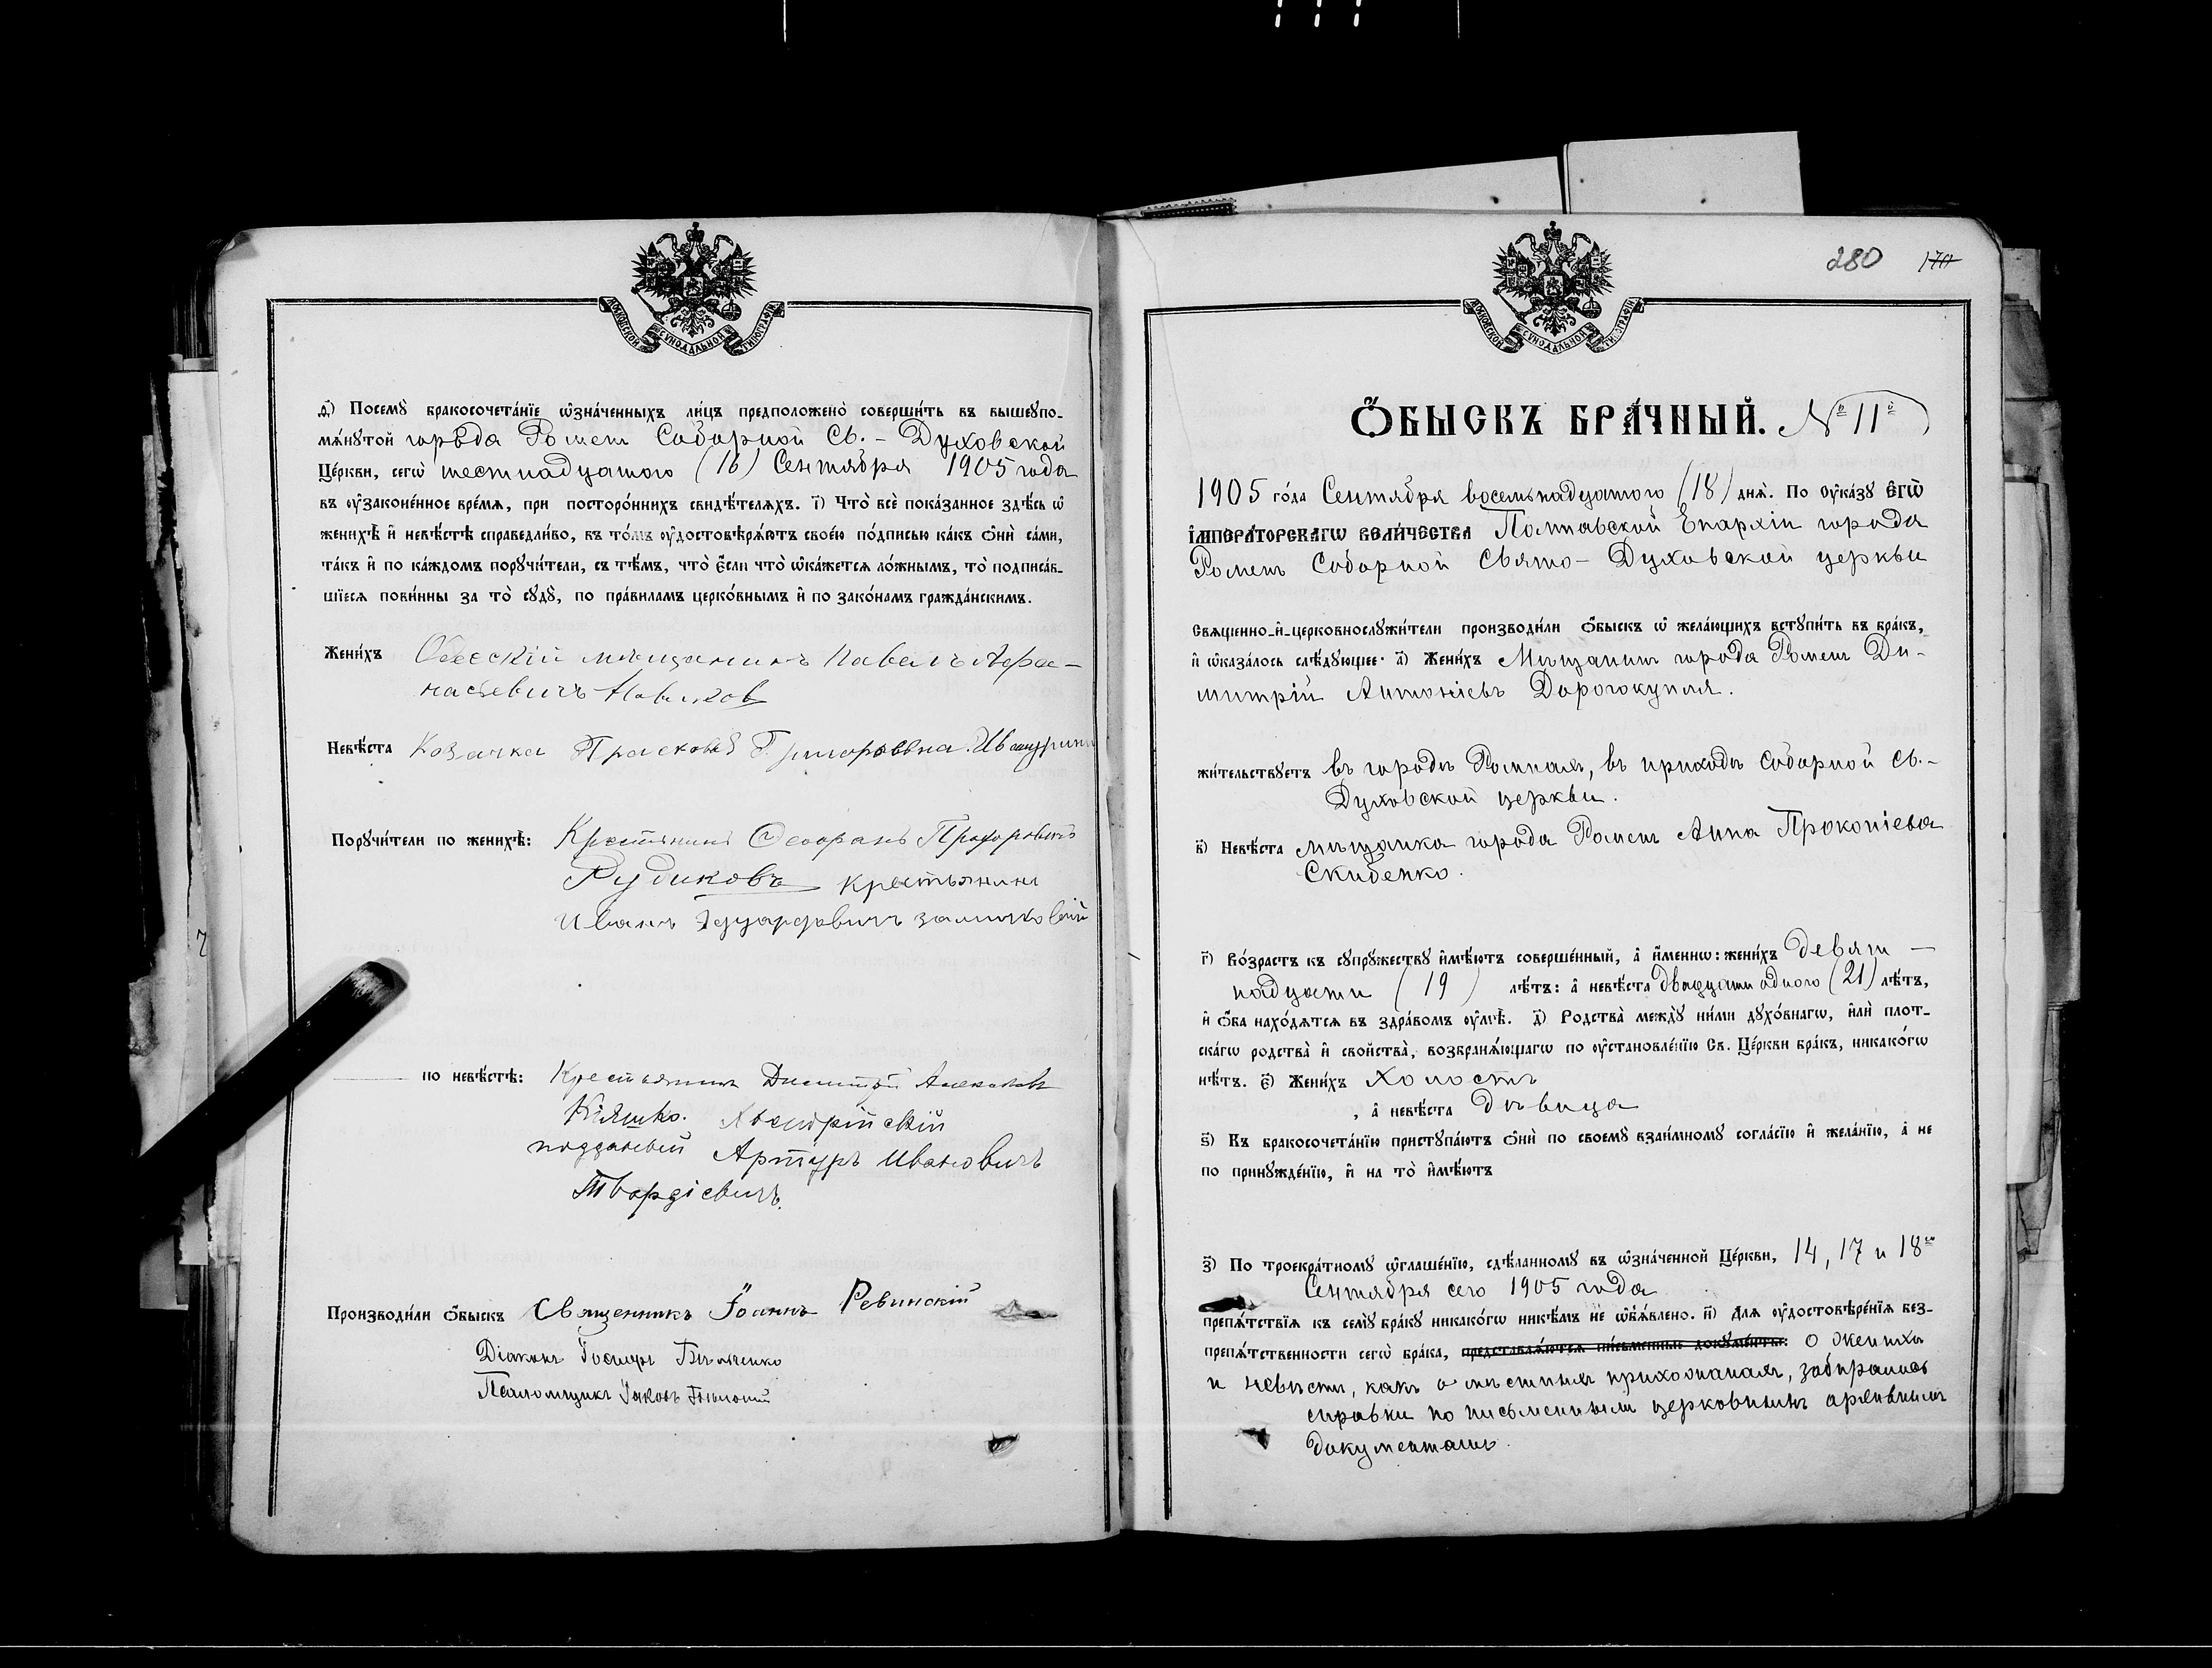 МОСКОВСКОЙ СѴНОДАЛЬНОЙ ТИПОГРАФІИ
д҃) Посемꙋ̀ бракосочета́нїе ѡ҆зна́ченныхъ ли́цъ предположено̀ соверши́ть въ вышеꙋпо-
мѧ́нꙋтой города Роменъ Соборной Св. - Духовской
Це́ркви, сегѡ̀ шестнадцатого (16) Сентября 1905 года
въ ᲂу҆законе́нное вре́мѧ, при посторо́ннихъ свидѣ́телѧхъ. і҃) Что̀ всѐ пока́занное здѣ́сь ѡ҆
женихѣ̀ и҆ невѣ́стѣ справедли́во, въ то́мъ ᲂу҆достовѣрѧ́ютъ свое́ю по́дписью ка́къ ѻ҆нѝ са́ми,
та́къ и҆ по ка́ждомъ порꙋчи́тели, съ тѣ́мъ, что̀ є҆́сли что̀ ѡ҆ка́жется ло́жнымъ, то̀ подписа́в-
шїеся пови́нны за то̀ сꙋдꙋ̀, по пра́виламъ церко́внымъ и҆ по зако́намъ гражда́нскимъ.
Жени́хъ мещанинъ Павелъ Афа-
насьевичъ Новиков
Невѣ́ста Козачка Прасковья Григорьевна
Порꙋчи́тели по женихѣ̀: Крестьянинъ Прохоровичъ
Рудиковъ крестьянинъ
Иванъ Эдуардовичъ
по невѣ́стѣ: Крестьянинъ Дмитрій
Кіяшко. Австрійскій
подданный Артуръ Ивановичъ
Твардіевичъ.
Производи́ли ѻ҆́быскъ Священникъ Іоаннъ Ревинскій
Діаконъ
Псаломщикъ Іаковъ
280 170
МОСКОВСКОЙ СѴНОДАЛЬНОЙ ТИПОГРАФІИ
Ѻ҆́БЫСКЪ БРА́ЧНЫЙ. № 11й
1905 го́да Сентября восемьнадцатого (18) днѧ̀. По ᲂу҆ка́зꙋ Є҆ГѠ̀
И҆МПЕРА́ТОРСКАГѠ ВЕЛИ́ЧЕСТВА Полтавской Епархіи города
Роменъ Соборной Свято- Духовской церкви
Свѧщенно-и҆-церковнослꙋжи́тели производи́ли ѻ҆́быскъ ѡ҆ жела́ющихъ встꙋпи́ть въ бра́къ,
и҆ ѡ҆каза́лось слѣ́дꙋющее: а҃) Жени́хъ Мѣщанинъ города Роменъ Ди-
митрій Антоніевъ Дорогокупля.
жи́тельствꙋетъ въ городѣ Ромнахъ, въ приходѣ соборной Св.-
Духовской церкви.
в҃) Невѣ́ста мѣщанка города Роменъ Анна Прокопіева
Скиденко.
г҃) Во́зрастъ къ сꙋпрꙋ́жествꙋ и҆мѣ́ютъ соверше́нный, а҆ и҆́меннѡ: жени́хъ девят -
надцати (19) лѣ́тъ: а҆ невѣ́ста двадцати одного (21) лѣ́тъ,
и҆ ѻ҆́ба нахо́дѧтся въ здра́вомъ ᲂу҆мѣ̀. д҃) Родства̀ междꙋ̀ ни́ми дꙋхо́внагѡ, и҆лѝ пло́т-
скагѡ родства̀ и҆ свойства̀, возбранѧ́ющагѡ по ᲂу҆становле́нїю Св. Це́ркви бра́къ, никако́гѡ
нѣ́тъ. є҃) Жени́хъ Холостъ
, а҆ невѣ́ста дѣвица
ѕ҃) Къ бракосочета́нїю пристꙋпа́ютъ ѻ҆нѝ по своемꙋ̀ взаи́мномꙋ согла́сїю и҆ жела́нїю, а҆ не
по принꙋжде́нїю, и҆ на то̀ и҆мѣ́ютъ
з҃) По троекра́тномꙋ ѡ҆глаше́нїю, сдѣ́ланномꙋ въ ѡ҆зна́ченной Це́ркви, 14, 17 и 18го
Сентября сего 1905 года
препѧ́тствїѧ къ семꙋ̀ бра́кꙋ никако́гѡ никѣ́мъ не ѡ҆б̾ѧ́влено. и҃) Для ᲂу҆достовѣре́нїѧ без-
препѧ́тственности сегѡ̀ бра́ка, представлѧ́ются пи́сьменные докꙋме́нты: о женихѣ
и невѣсти, какъ о мѣстныхъ прихожанахъ, забрались
справки по письменнымъ церковнымъ архивнымъ
документамъ.